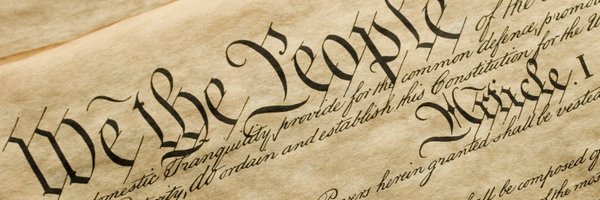 We the People of the
domestic Tranquility, provide for the common defence, promo
do ordain and establish this Constitution for the U
Article. I
herein granted shall be vested
shall be composed of
of the mos